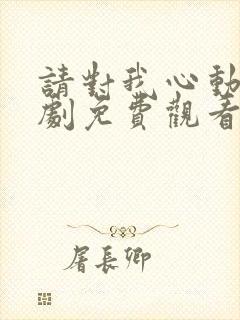 請對我心動
劇免費觀看
屠長卿